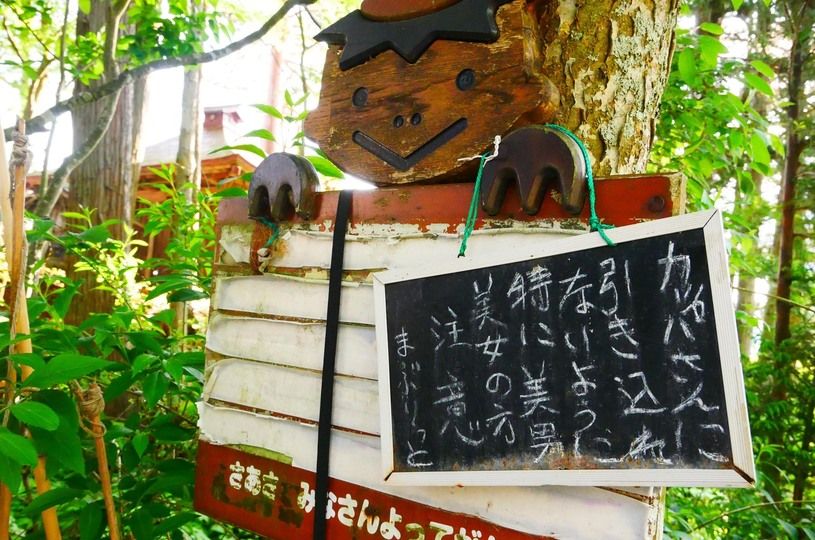 カッパさんに
引き込れ
ないように
特に美男
美女の方
注意
まぶりっと
さあさ みなさんよってが